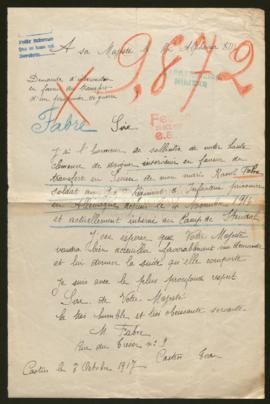 A sa Majesté
Alphonse XIII
9.842
Demande d'intervention
en faveur du transfert
d'un prisonnier de guerre
Fabre
Sire
J'ai l'honneur de solliciter de votre haute
clémence de daigner intervenir en faveur du
transfert en Suisse de mon mari Raoul Fabre
soldat au Régiment d'Infanterie prisonnier
en Allemagne depuis le 1915
et actuellement interné au Camp de
J'ose espérer que Votre Majesté
voudra bien accueillir favorablement ma demande
et lui donner la suite qu'elle comporte
Je suis avec le plus profond respect
Sire de Votre Majesté
la très humble et très obéissante servante
M. Fabre
Rue du
Castres Tarn
Castres le 8 Octobre 1917